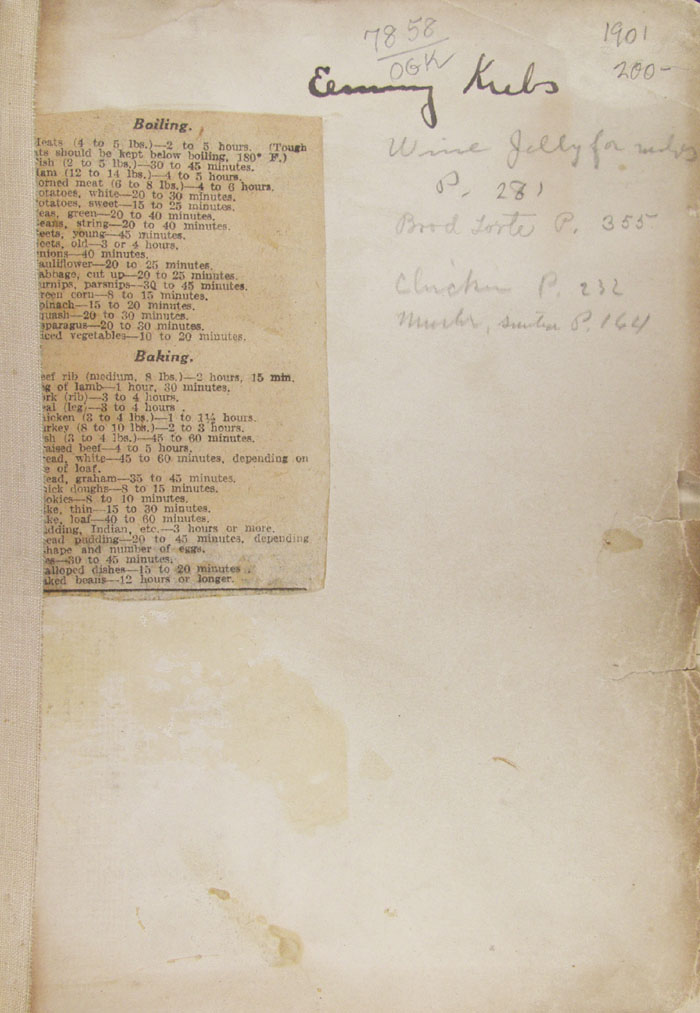 7858
OGK
1901
200-
Krebs
Wine Jelly for
P. 281
Brod Torte P. 355
Chicken P. 232
P. 164
Boiling.
Meats (4 to 5 lbs.)—2 to 5 hours. (Tough
ts should be kept below boiling, 180° F.)
ish (2 to 5 lbs.)—30 to 45 minutes.
Ham (12 to 14 lbs.)—4 to 5 hours.
orned meat (6 to 8 lbs.)—4 to 6 hours.
otatoes, white—20 to 30 minutes.
otatoes, sweet—15 to 25 minutes.
eas, green—20 to 40 minutes.
eans, string—20 to 40 minutes.
eets, young—45 minutes.
eets, old—3 or 4 hours.
nions—40 minutes.
auliflower—20 to 25 minutes.
abbage, cut up—20 to 25 minutes.
urnips, parsnips—30 to 45 minutes.
reen corn—8 to 15 minutes.
pinach—15 to 20 minutes.
quash—20 to 30 minutes.
sparagus—20 to 30 minutes.
iced vegetables—10 to 20 minutes.
Baking.
eef rib (medium, 8 lbs.)—2 hours, 15 min.
eg of lamb—1 hour, 30 minutes.
ork (rib)—3 to 4 hours.
eal (leg)—3 to 4 hours.
hicken (3 to 4 lbs.)—1 to 1½ hours.
urkey (8 to 10 lbs.)—2 to 3 hours.
sh (3 to 4 lbs.)—45 to 60 minutes.
raised beef—4 to 5 hours.
read, white—45 to 60 minutes, depending on
e of loaf.
ead, graham—35 to 45 minutes.
hick doughs—8 to 15 minutes.
ookies—8 to 10 minutes.
ake, thin—15 to 30 minutes.
ake, loaf—40 to 60 minutes.
udding, Indian, etc.—3 hours or more.
ead pudding—20 to 45 minutes, depending
shape and number of eggs.
es—30 to 45 minutes.
alloped dishes—15 to 20 minutes.
aked beans—12 hours or longer.